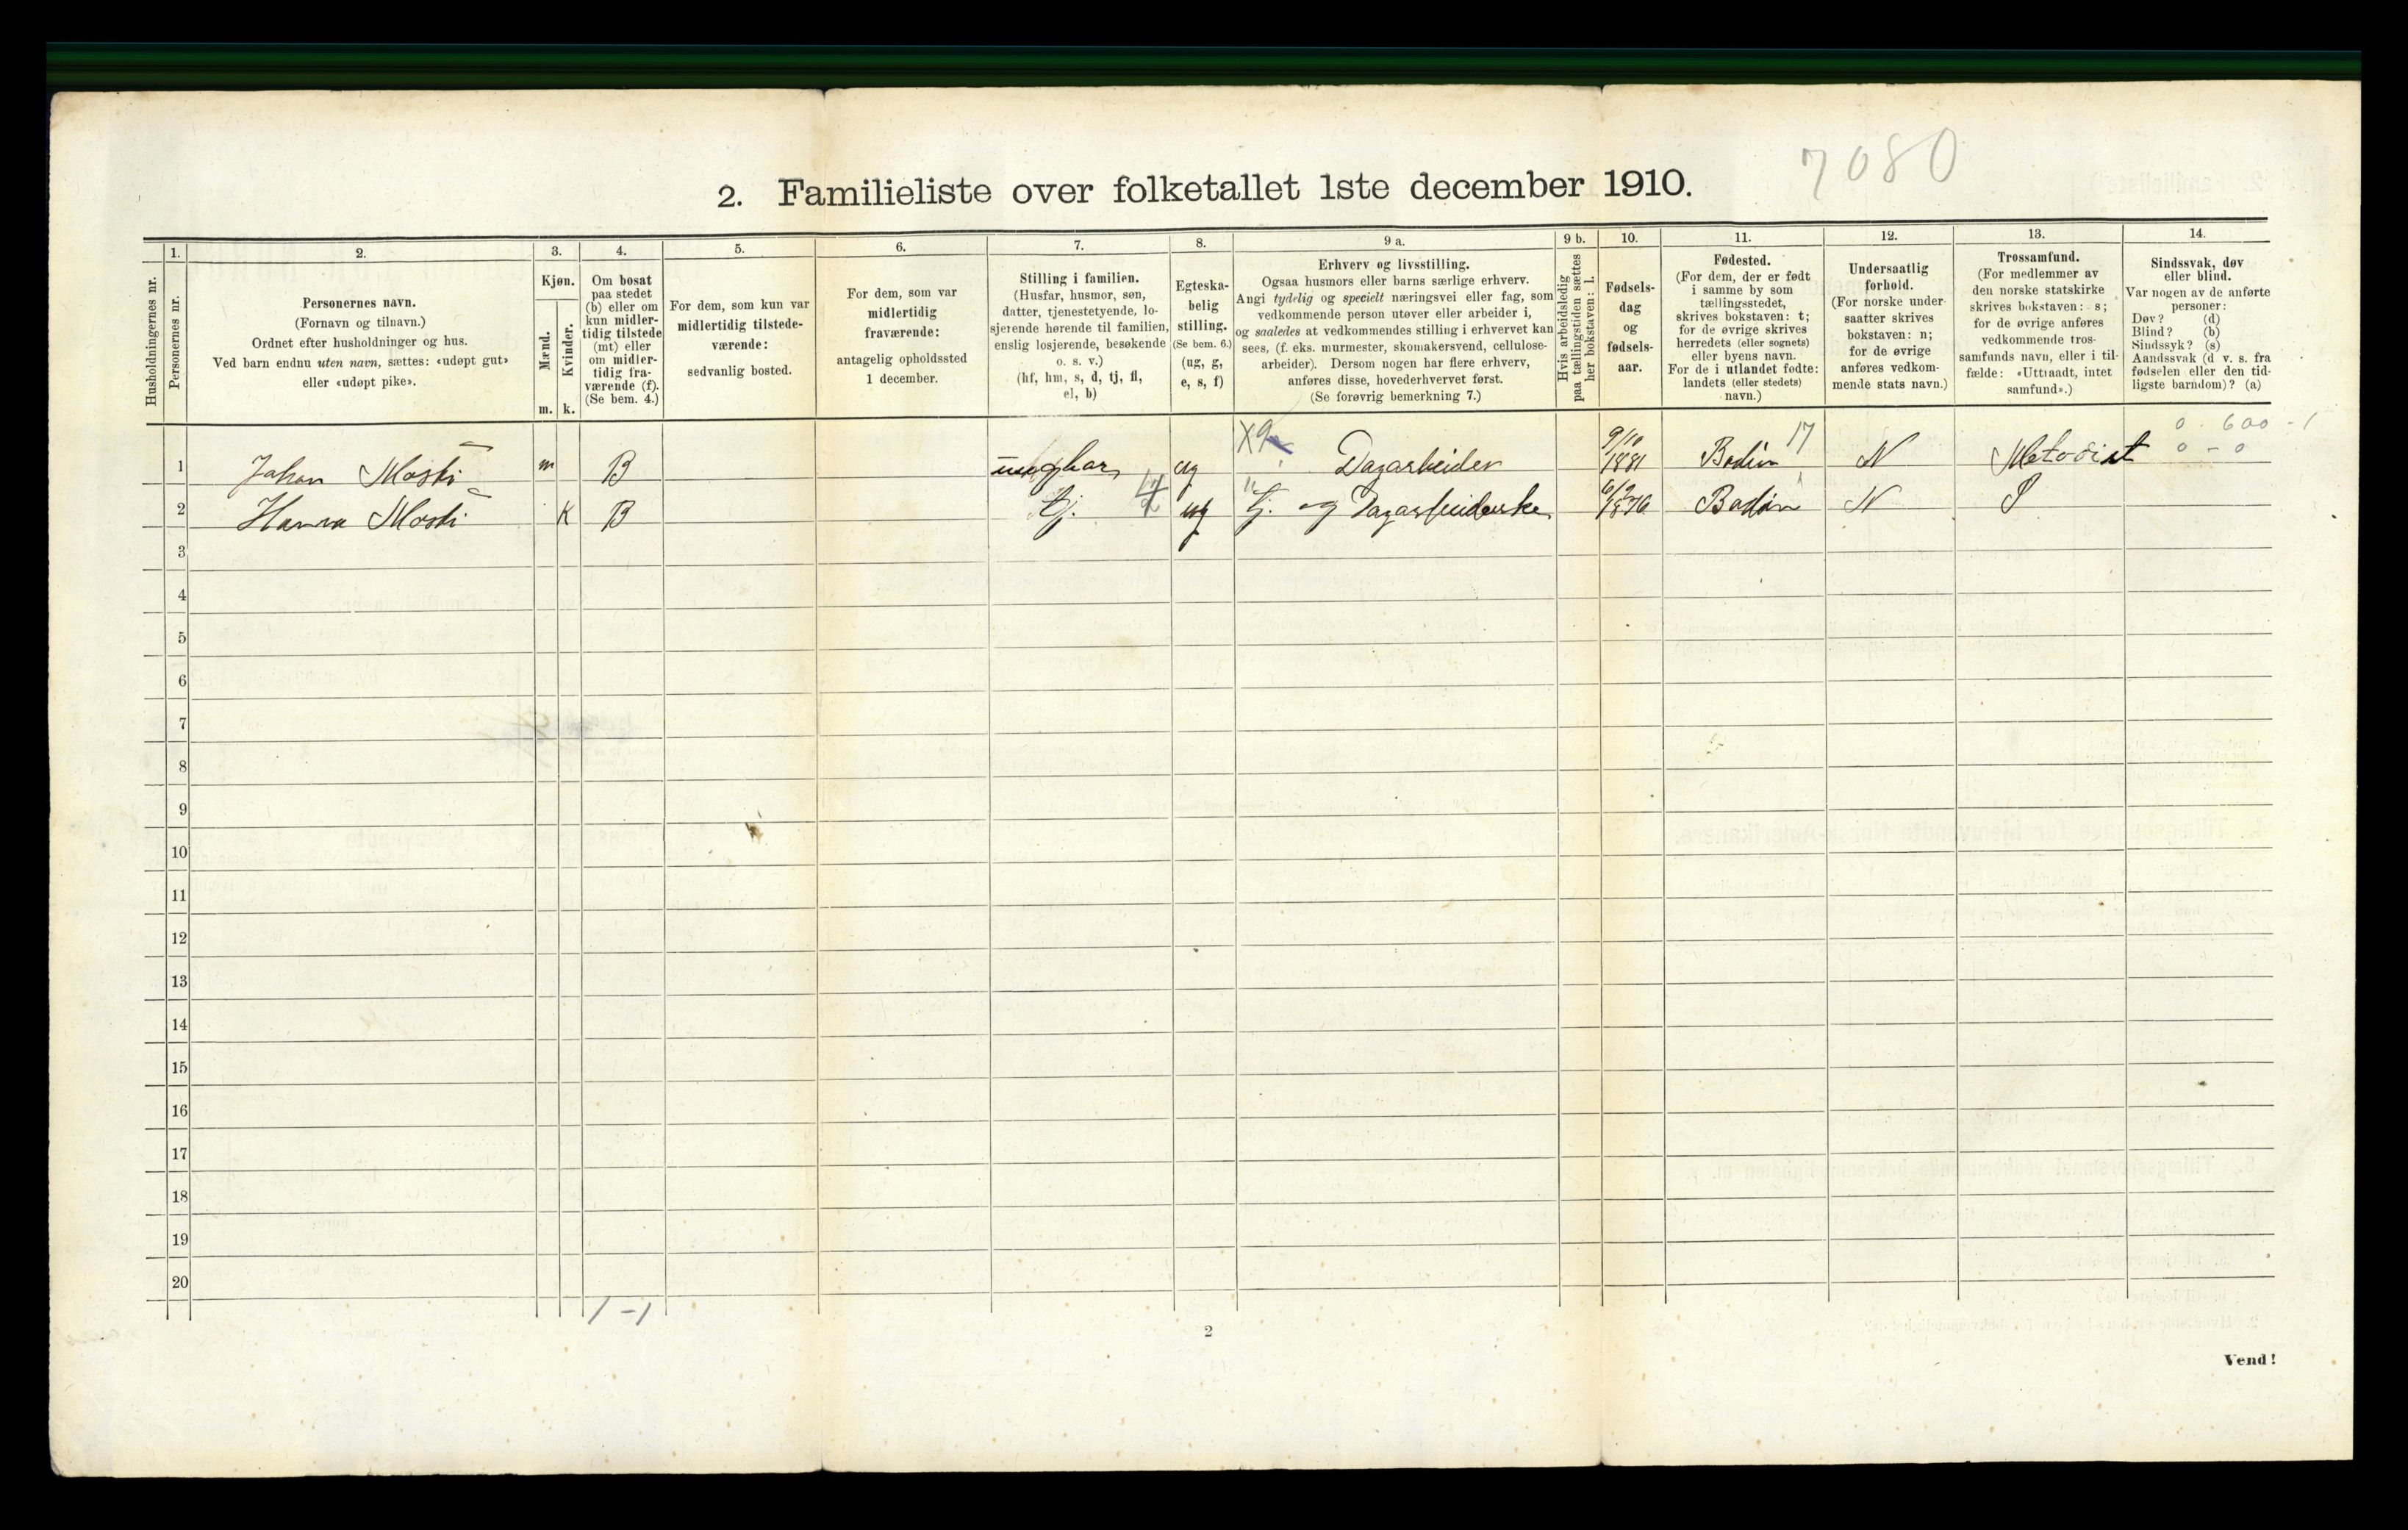 7080
2. Familieliste over folketallet 1ste december 1910.
Husholdningernes nr.
1.
Personernes nr.
2.
Personernes navn.
(Fornavn og tilnavn.)
Ordnet efter husholdninger og hus.
Ved barn endnu uten navn, sættes: «udøpt gut»
eller «udøpt pike».
3.
Kjøn.
Mænd.
Kvinder.
m.
k.
4.
Om bosat
paa stedet
(b) eller om
kun midler-
tidig tilstede
(mt) eller
om midler-
tidig fra-
værende (f).
(Se bem. 4.)
5.
For dem, som kun var
midlertidig tilstede-
værende:
sedvanlig bosted.
6.
For dem, som var
midlertidig
fraværende:
antagelig opholdssted
1 december.
7.
Stilling i familien.
(Husfar, husmor, søn,
datter, tjenestetyende, lo-
sjerende hørende til familien,
enslig losjerende, besøkende
o. s. v.)
(hf, hm, s, d, tj, fl,
el, b)
8.
Egteska-
belig
stilling.
(Se bem. 6.)
(ug, g,
e, s, f)
9 a.
Erhverv og livsstilling.
Ogsaa husmors eller barns særlige erhverv.
Angi tydelig og specielt næringsvei eller fag, som
vedkommende person utøver eller arbeider i,
og saaledes at vedkommendes stilling i erhvervet kan
sees, (f. eks. murmester, skomakersvend, cellulose-
arbeider). Dersom nogen har flere erhverv,
anføres disse, hovederhvervet først.
(Se forøvrig bemerkning 7.)
9 b.
Hvis arbeidsledig
paa tællingstiden sættes
her bokstaven: l.
10.
Fødsels-
dag
og
fødsels-
aar.
11.
Fødested.
(For dem, der er født
i samme by som
tællingsstedet,
skrives bokstaven: t;
for de øvrige skrives
herredets (eller sognets)
eller byens navn.
For de i utlandet fødte:
landets (eller stedets)
navn.)
12.
Undersaatlig
forhold.
(For norske under-
saatter skrives
bokstaven: n;
for de øvrige
anføres vedkom-
mende stats navn.)
13.
Trossamfund.
(For medlemmer av
den norske statskirke
skrives bokstaven: s;
for de øvrige anføres
vedkommende tros-
samfunds navn, eller i til-
fælde: «Uttraadt, intet
samfund».)
14.
Sindssvak, døv
eller blind.
Var nogen av de anførte
personer:
Døv? (d)
Blind? (b)
Sindssyk? (s)
Aandssvak (d. v. s. fra
fødselen eller den tid-
ligste barndom)? (a)
0 - 600 - 1
0 - 0
1 Johan Moski m B ug Dagarbeider 9/10 1881 Bodin 17 N Metodist
2 Hanna Moski K B tj. ug tj. og Dagarbeiderske 1876 Bodin N S
3
4
5
6
7
8
9
10
11
12
13
14
15
16
17
18
19
20
1 - 1
2
Vend!